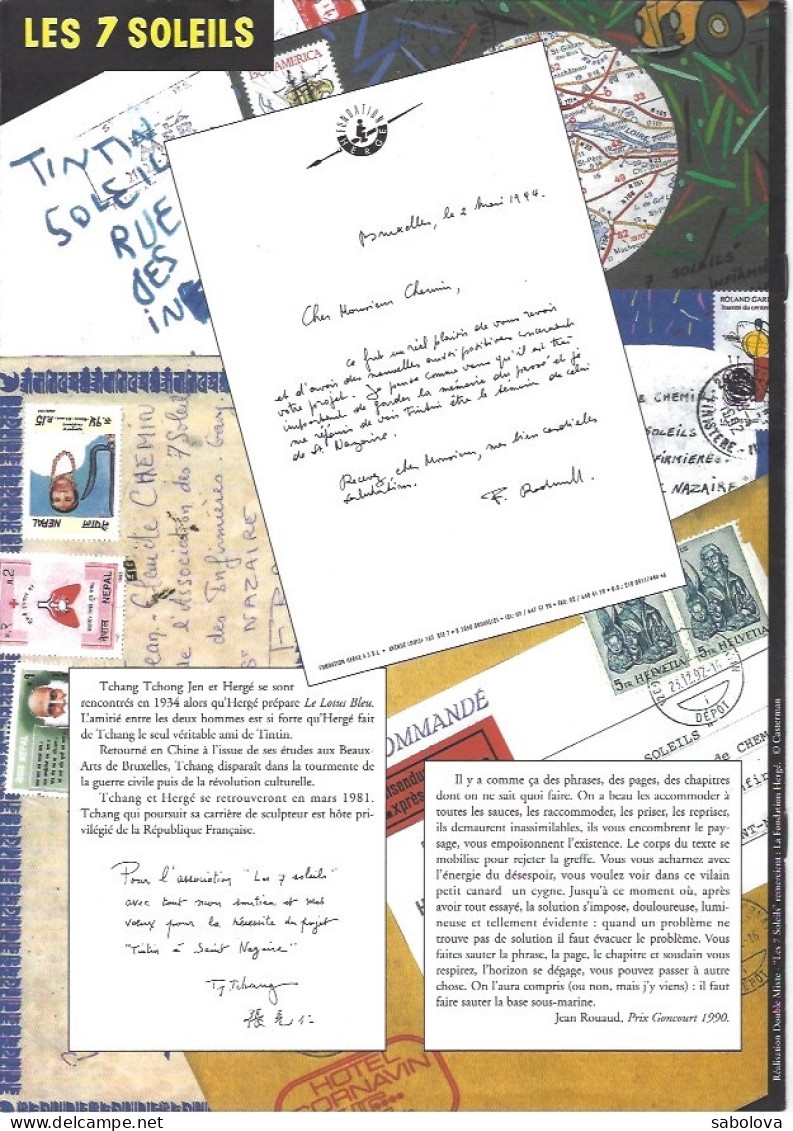 LES 7 SOLEILS
AMERICA
TINTIN
SOLEIL
RUE
DES
IN
FONDATION
HERGÉ
Bruxelles, le 2 mai 1994.
Cher Monsieur Chemin,
Ce fut un réel plaisir de vous revoir
et d'avoir des nouvelles aussi positives concernant
votre projet. Je pense comme vous qu'il est très
important de garder la mémoire du passé et je
me réjouis de voir Tintin être le témoin de celui
de St. Nazaire.
Recevez, cher Monsieur, mes bien cordiales
salutations.
F. Rodwell.
LOIRE
7 SOLEILS
INFIRMIÈ
ROLAND GAR
E CHEMI
SOLEILS
FIRMIÈRE
NAZAIRE
NEPAL
Jean-Claude CHEMIN
de l'Association des 7 Soleil
des Infirmières
St NAZAIRE
NEPAL
NEPAL
HELVETIA
HELVETIA
23.12.92-16
DEPOT
COMMANDÉ
SOLEILS"
DE CHEM
Tchang Tchong Jen et Hergé se sont
rencontrés en 1934 alors qu'Hergé prépare Le Lotus Bleu.
L'amitié entre les deux hommes est si forte qu'Hergé fait
de Tchang le seul véritable ami de Tintin.
Retourné en Chine à l'issue de ses études aux Beaux-
Arts de Bruxelles, Tchang disparaît dans la tourmente de
la guerre civile puis de la révolution culturelle.
Tchang et Hergé se retrouveront en mars 1981.
Tchang qui poursuit sa carrière de sculpteur est hôte pri-
vilégié de la République Française.
Pour l'association "Les 7 soleils"
avec tout mon soutien et mes
vœux pour la réussite du projet
"Tintin à Saint Nazaire"
T.J. Tchang
Il y a comme ça des phrases, des pages, des chapitres
dont on ne sait quoi faire. On a beau les accommoder à
toutes les sauces, les raccommoder, les priser, les repriser,
ils demaurent inassimilables, ils vous encombrent le pay-
sage, vous empoisonnent l'existence. Le corps du texte se
mobilise pour rejeter la greffe. Vous vous acharnez avec
l'énergie du désespoir, vous voulez voir dans ce vilain
petit canard un cygne. Jusqu'à ce moment où, après
avoir tout essayé, la solution s'impose, douloureuse, lumi-
neuse et tellement évidente : quand un problème ne
trouve pas de solution il faut évacuer le problème. Vous
faites sauter la phrase, la page, le chapitre et soudain vous
respirez, l'horizon se dégage, vous pouvez passer à autre
chose. On l'aura compris (ou non, mais j'y viens) : il faut
faire sauter la base sous-marine.
Jean Rouaud, Prix Goncourt 1990.
HOTEL
CORNAVIN
Réalisation Double Mixte - "Les 7 Soleils" remercient : La Fondation Hergé. © Casterman
sabolova